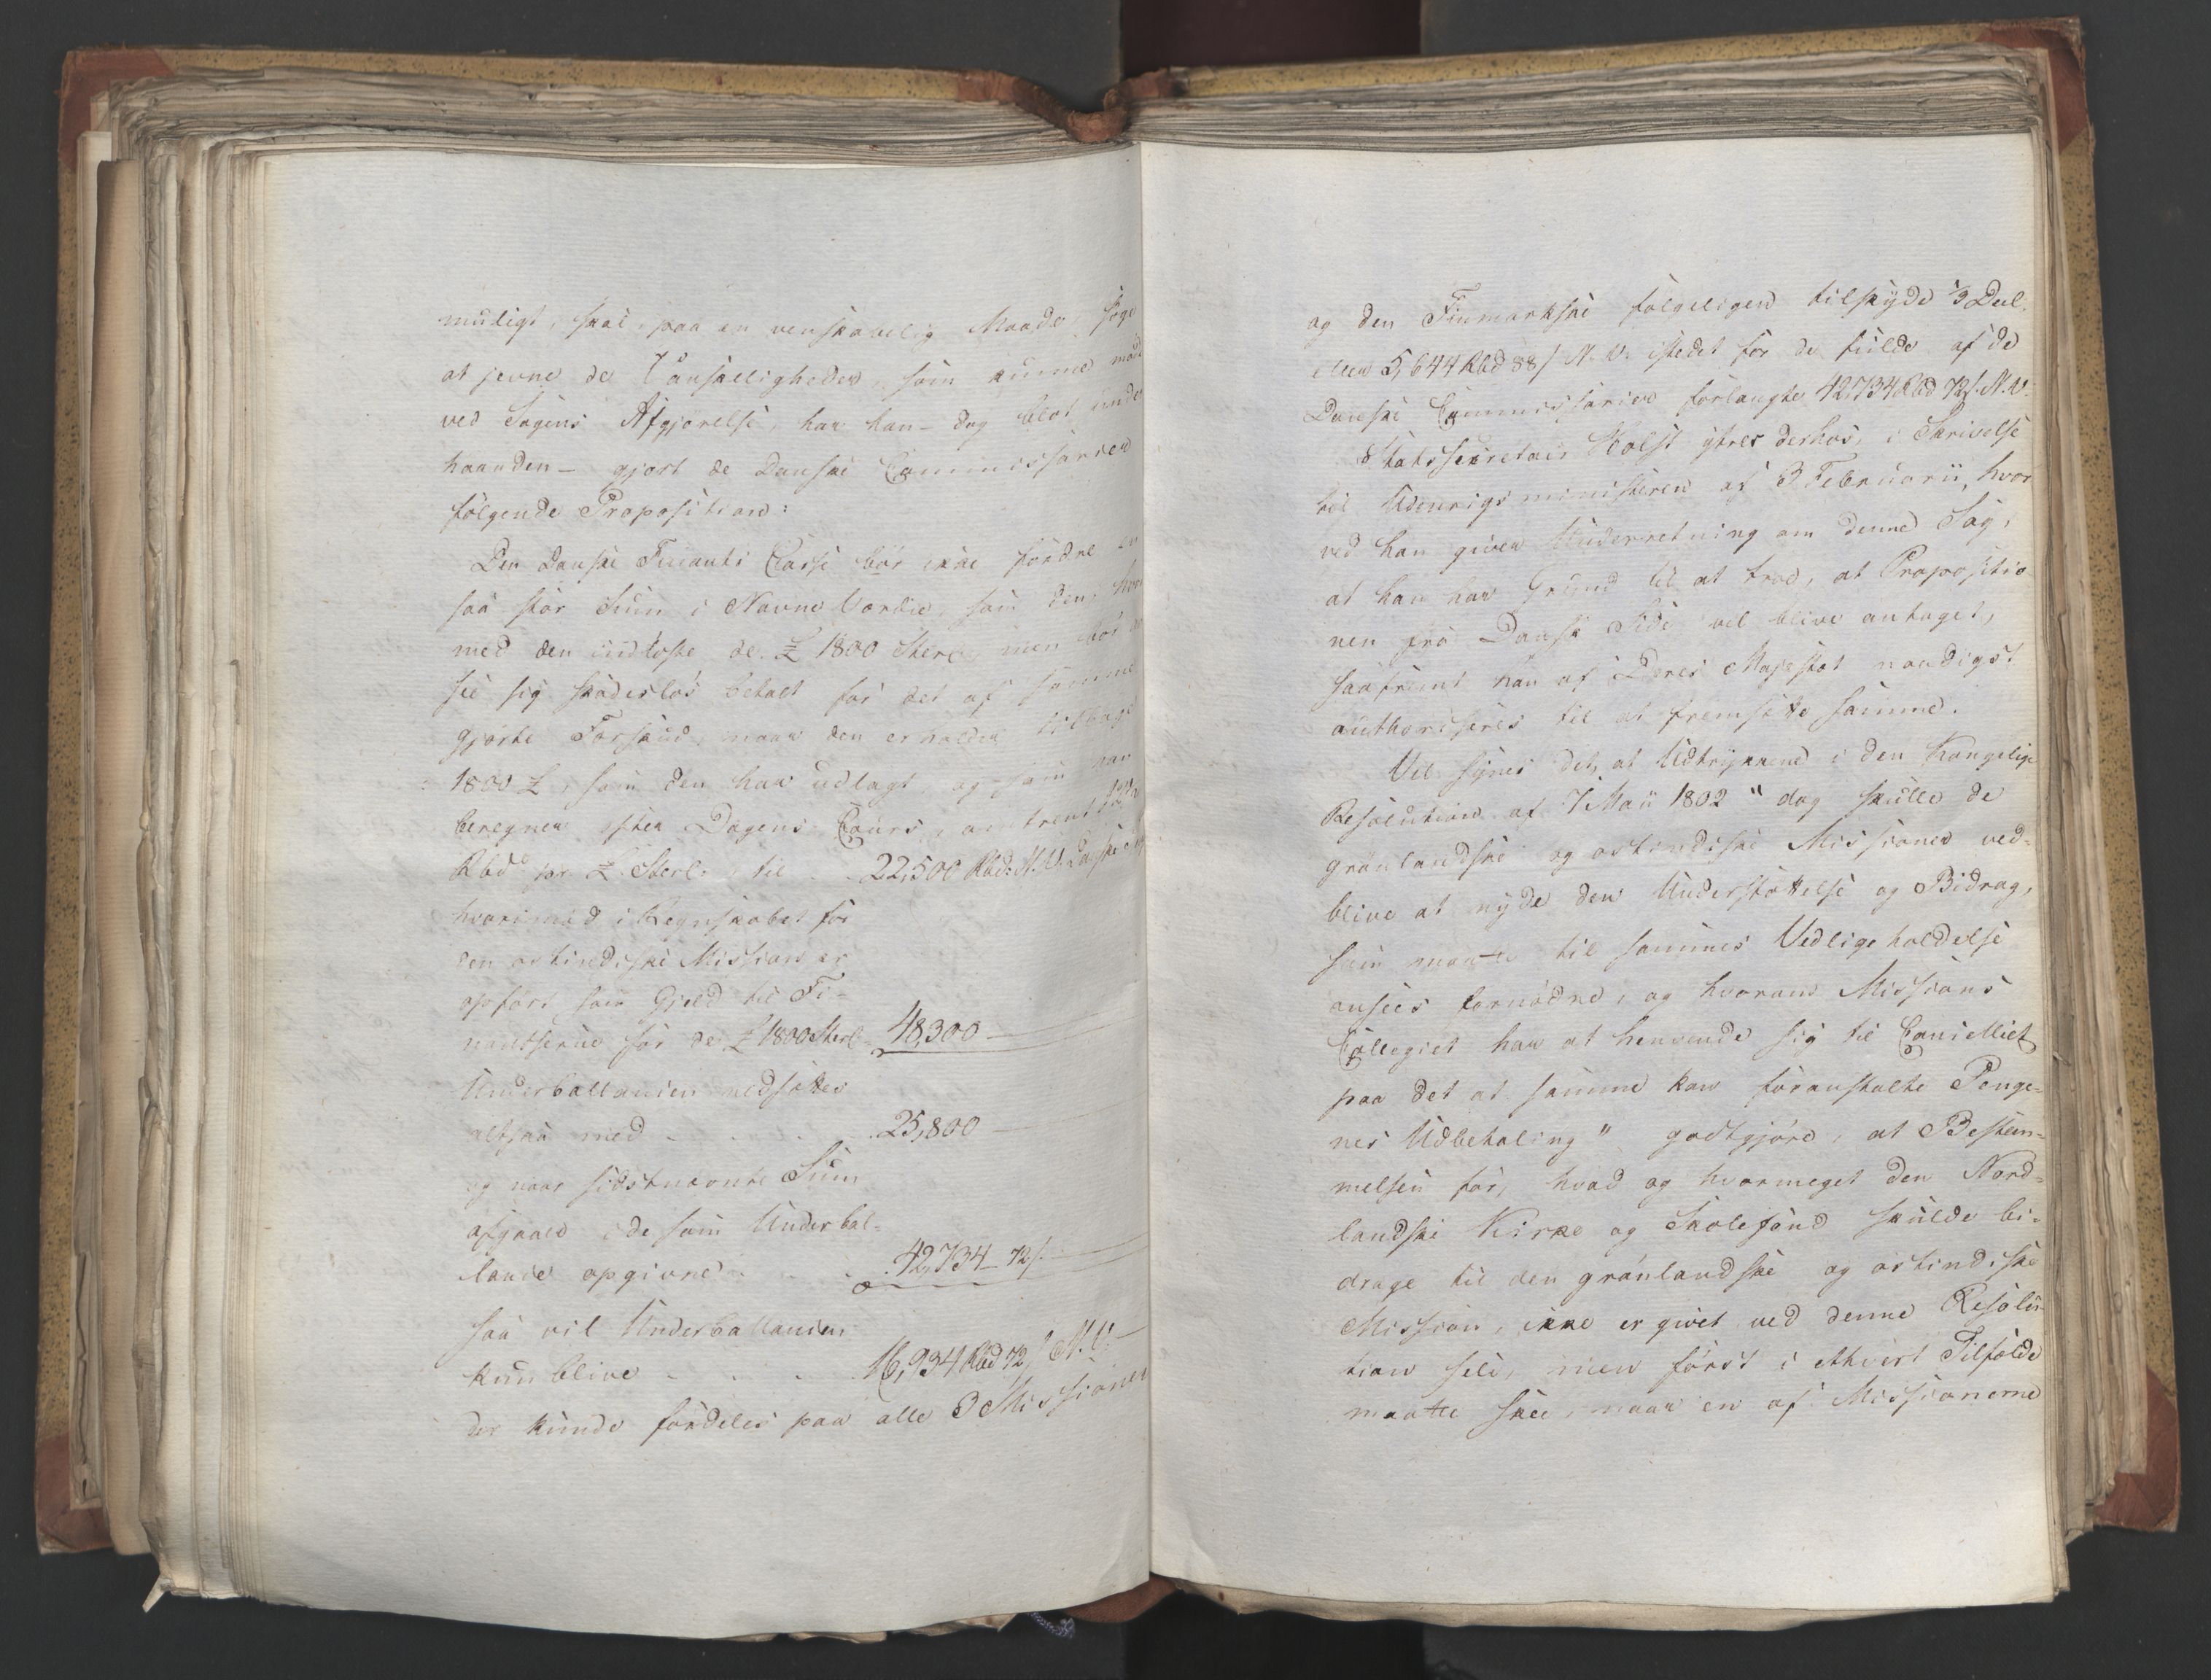 muligt, skal, paa en venskabelig Maade, søge
at jevne de Vanskeligheder, som kunne møde
ved Sagens Afgjørelse, har han – dog blot under
haanden – gjort de Danske Commissarier
følgende Proposition:
Den danske Finants Casse bør ikke fordre en
saa stor Sum i Navne Værdie, som den, hvor
med den indløste de £ 1800 Sterl. men bør
see sig skadesløs betalt for det af samme
gjorte Forskud, naar den erholder tilbage
1800 £, som den har udlagt, og som man
beregner efter Dagens Cours, omtrent
Rbd. pr £ Sterl., til . . 22,500 Rbd. N.V. Danske
hvorimod i Regnskabet for
den ostindiske Mission er
opført som Gjeld til Fi-
nantserne for de £ 1800 Sterl. 48,300 –
Underballancen nedsættes
altsaa med . . . . 25,800 –
og naar sidstnævnte Sum
afgaaer i de som Underbal-
lance opgivne . . . 42,734 – 72 s.
saa vil Underballancen
kun blive . . . . 16,934 Rbd 72 s N.V. –
der kunde fordeles paa alle 3 Missioner
og den Finmarkske følgeligen tilskyde 1/3 Deel
eller 5,644 Rbd 88 s N.V. istedet for de fulde af de
Danske Commissarier forlangte 42,734 Rbd 72 s. N.V.
Statssecretair Holst yttrer derhos, i Skrivelse
til Udenrigsministeren af 3 Februarii, hvor
ved han giver Underretning om denne Sag,
at han har Grund til at troe, at Propositio-
nen fra Dansk Side vil blive antaget,
saafremt han af Deres Majestæt naadigst
authoriseres til at fremsætte samme.
Vel synes det, at Udtrykkene i den Kongelige
Resolution af 7 Maii 1802 "dog skulle de
grønlandske og ostindiske Missioner ved-
blive at nyde den Understøttelse og Bidrag,
som maatte til sammes Vedligeholdelse
ansees fornødne, og hvorom Missions
Collegiet har at henvende sig til Cancelliet
paa det at samme kan foranstalte Penge-
nes Udbetaling" godtgjøre, at Bestem-
melsen for, hvad og hvormeget den Nord-
landske Kirke og Skolefond skulde bi-
drage til den grønlandske og ostindiske
Mission, ikke er givet ved denne Resolu-
tion selv, men først i ethvert Tilfælde
maatte skee, naar en af Missionerne